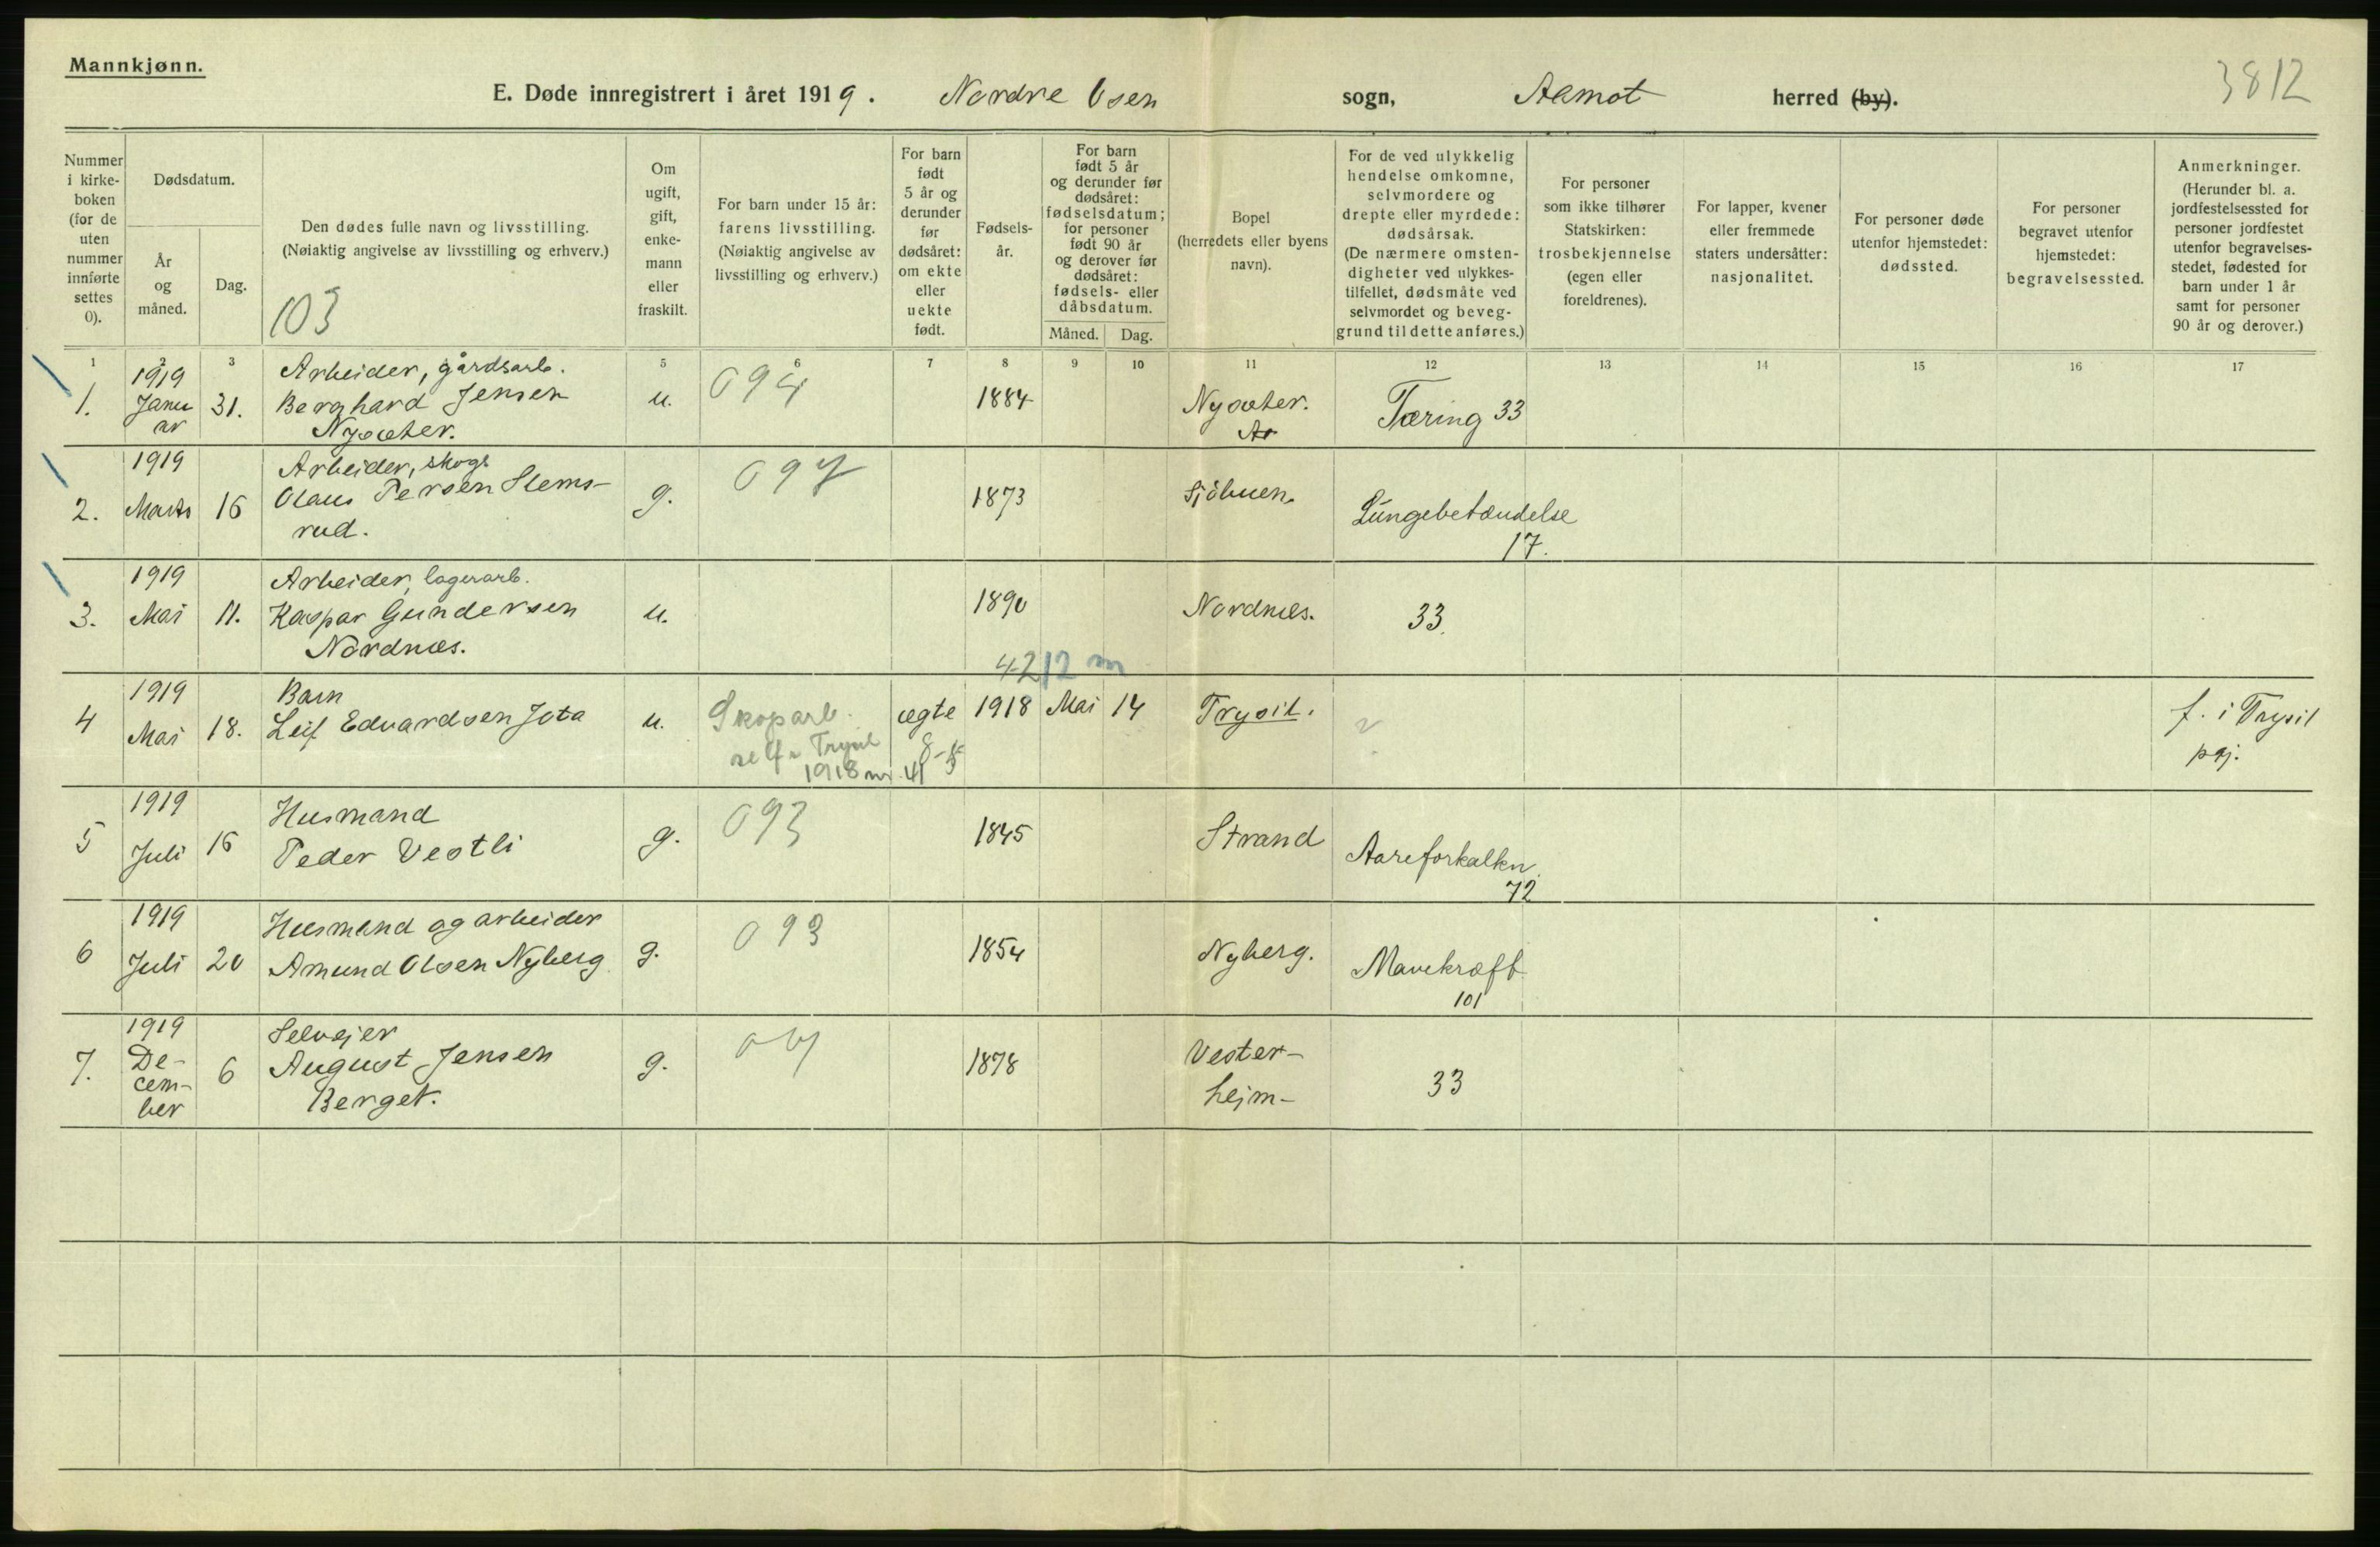 Mannkjønn.
E. Døde innregistrert i året 1919. Nordre Osen sogn, Aamot herred (by).
3812
Nummer i kirke- boken (for de uten nummer innførte settes 0).
Dødsdatum.
År og måned.
Dag.
Den dødes fulle navn og livsstilling.
(Nøiaktig angivelse av livsstilling og erhverv.)
103
Om ugift, gift, enke- mann eller fraskilt.
For barn under 15 år: farens livsstilling. (Nøiaktig angivelse av livsstilling og erhverv.)
For barn født 5 år og derunder før dødsåret: om ekte eller uekte født.
Fødsels- år.
For barn født 5 år og derunder før dødsåret: fødselsdatum; for personer født 90 år og derover før dødsåret: fødsels- eller dåbsdatum.
Måned. Dag.
Bopel (herredets eller byens navn).
For de ved ulykkelig hendelse omkomne, selvmordere og drepte eller myrdede: dødsårsak. (De nærmere omsten- digheter ved ulykkes- tilfellet, dødsmåte ved selvmordet og beveg- grund til dette anføres.)
For personer som ikke tilhører Statskirken: trosbekjennelse (egen eller foreldrenes).
For lapper, kvener eller fremmede staters undersåtter: nasjonalitet.
For personer døde utenfor hjemstedet: dødssted.
For personer begravet utenfor hjemstedet: begravelsessted.
Anmerkninger. (Herunder bl. a. jordfestelsessted for personer jordfestet utenfor begravelses- stedet, fødested for barn under 1 år samt for personer 90 år og derover.)
1 2 3 5 6 7 8 9 10 11 12 13 14 15 16 17
1. 1919 Janu ar 31. Arbeider, gårdsarb. Berghard Jensen Nysæter. u. 094 1884 Nysæter. Ar Tæring 33
2. 1919 Marts 16 Arbeider, skogs Olaus Persen Stems- rud. g. 097 1873 Sjöbuen. Lungebetændelse 17.
3. 1919 Mai 11. Arbeider, lagerarb. Kaspar Gundersen Nordnæs. u. 1890 Nordnæs. 33.
4212 m
4 1919 Mai 18. Barn Leif Edvardsen Jota u. Skogarb. Trysil 1918 nr. 41 ægte 1918 Mai 14 Trysil. f. i Trysil pgj.
5 1919 Juli 16 Husmand Peder Vestli g. 093 1845 Strand Aareforkalkn. 72
6 1919 Juli 20 Husmand og arbeider Amund Olsen Nyberg g. 093 1854 Nyberg. Mavekræft 101
7. 1919 De- cem- ber 6 Selvejer August Jensen Berget. g. 1878 Vester- hejm- 33